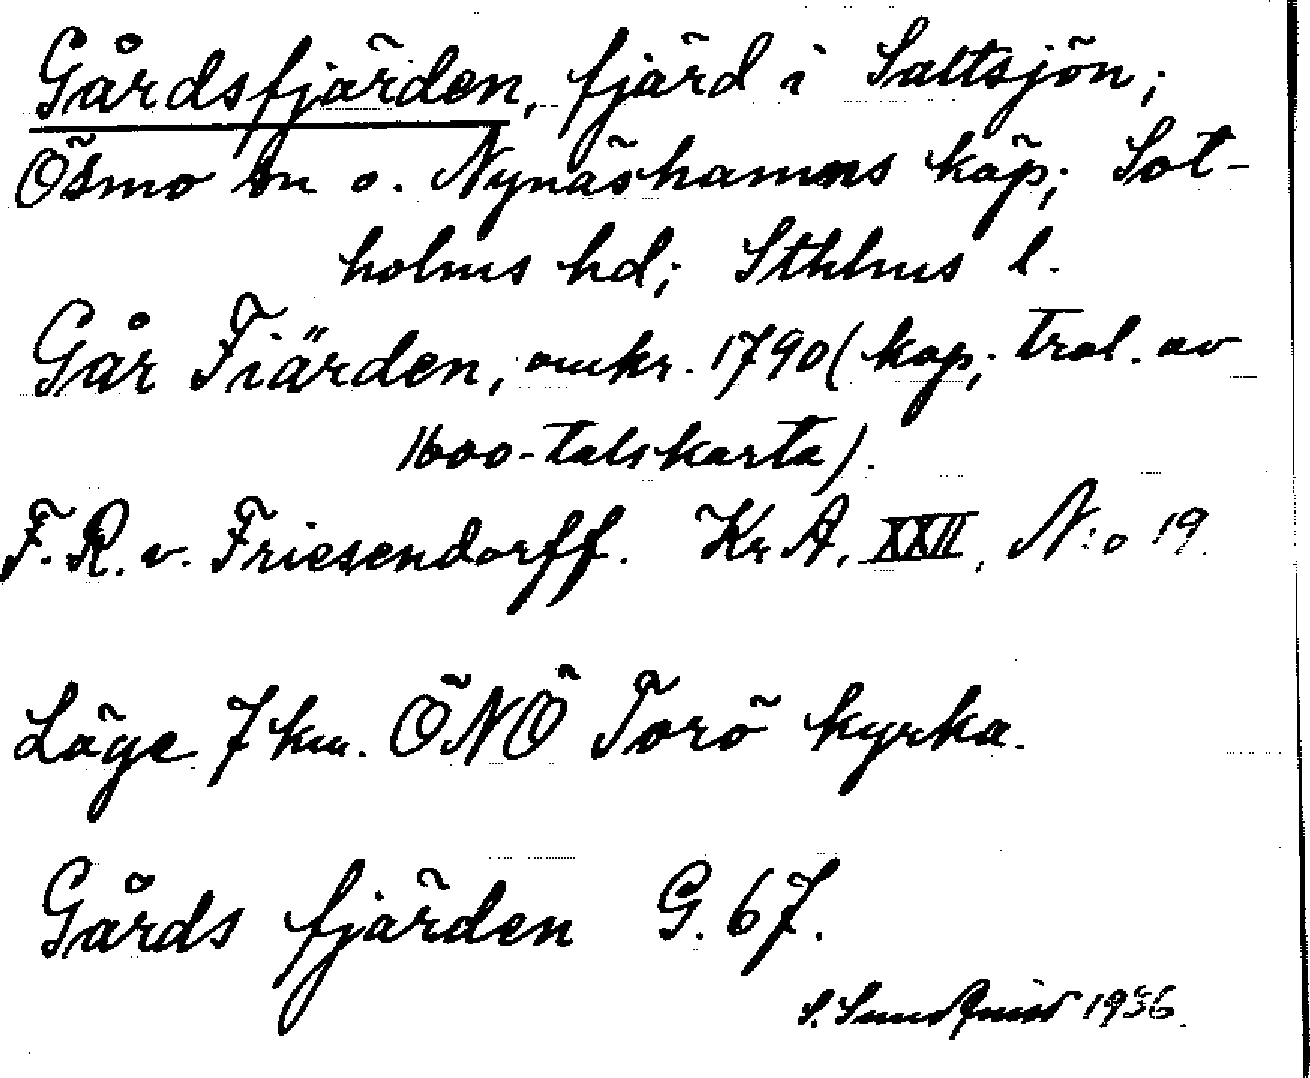 Gårdsfjärden, fjärd i Saltsjön;
Ösmo sn o. Nynäshamns köp; Sot-
holms hd; Sthlms l.
Går Fiärden, omkr. 1790 (kop; trol. av
1600-talskarta).
F. R. v. Friesendorff. Kr A. XXII, N:o 19.
Läge 7 km. ÖNÖ Torö kyrka.
Gårds fjärden G. 67.
S. Sundquist 1936.